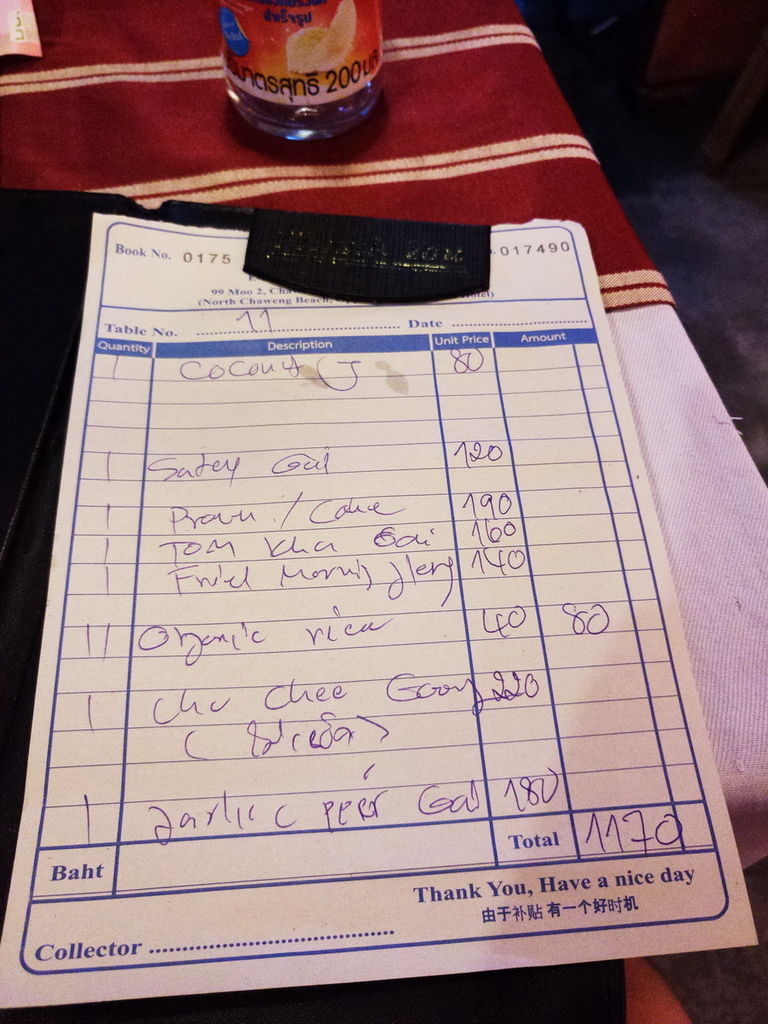 สำเร็จรูป
ปริมาตรสุทธิ 200 มล
Book No. 0175
017490
99 Moo 2,
(North Chaweng Beach,
Table No. 11 Date
Quantity Description Unit Price Amount
1 Coconut 80
1 Satey Gai 120
1 Prawn / Cake 190
1 Tom kha Gai 160
1 Fried Morning glory 140
11 Organic rice 40 80
1 Chu Chee Goong 220
1 garlic Gai 180
Baht Total 1170
Thank You, Have a nice day
由于补贴 有一个好时机
Collector